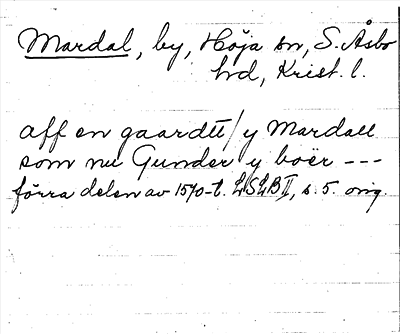 Mardal, by, Höja sn, S. Åsbo
hd, Krist. l.
aff en gaardtt / y Mardall
som nu Gunder y boër ---
förra delen av 1570-t. LSLB II, s. 5. orig.